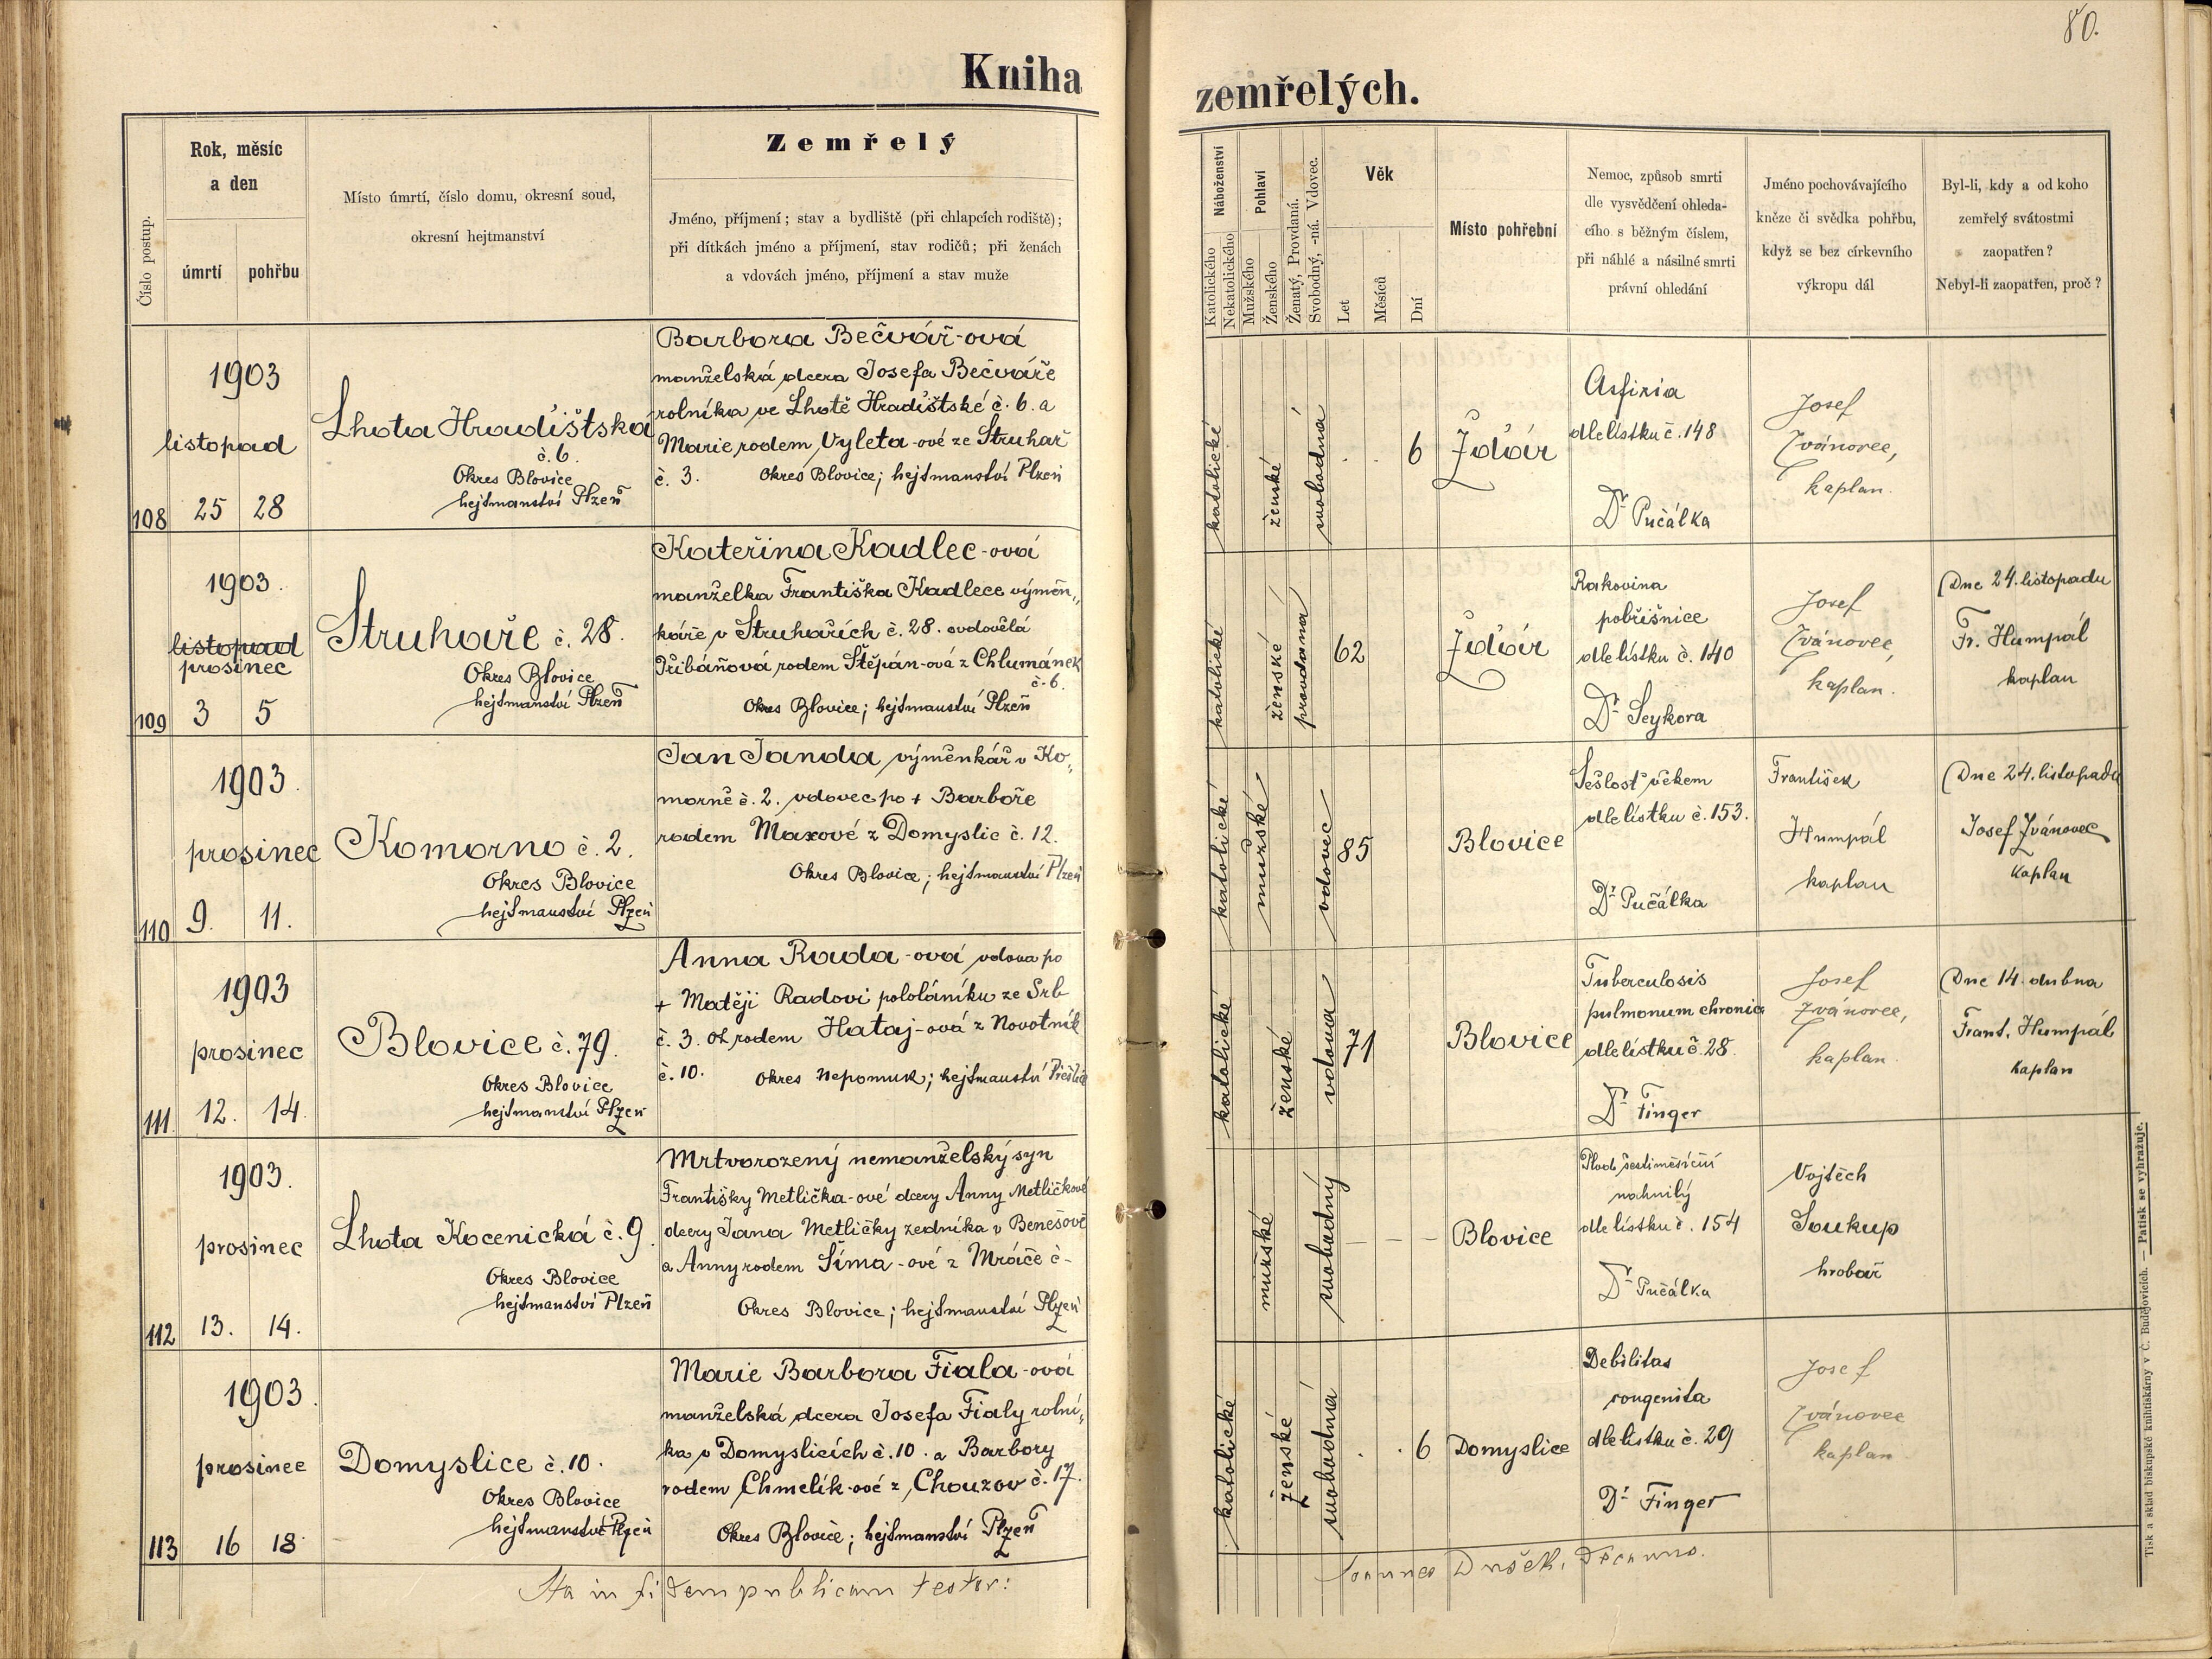 80.
Kniha zemřelých.
Číslo postup.
Rok, měsíc
a den
úmrtí
pohřbu
Místo úmrtí, číslo domu, okresní soud,
okresní hejtmanství
Zemřelý
Jméno, příjmení; stav a bydliště (při chlapcích rodiště);
při dítkách jméno a příjmení, stav rodičů; při ženách
a vdovách jméno, příjmení a stav muže
Náboženství
Katolického
Nekatolického
Pohlaví
Mužského
Ženského
Ženatý, Provdaná.
Svobodný, -ná. Vdovec.
Věk
Let
Měsíců
Dní
Místo pohřební
Nemoc, způsob smrti
dle vysvědčení ohleda-
cího s běžným číslem,
při náhlé a násilné smrti
právní ohledání
Jméno pochovávajícího
kněze či svědka pohřbu,
když se bez církevního
výkropu dál
Byl-li, kdy a od koho
zemřelý svátostmi
zaopatřen?
Nebyl-li zaopatřen, proč?
108
1903
listopad
25 28
Lhota Hradištská
č. 6.
Okres Blovice
hejtmanství Plzeň
Barbora Bečvář-ová
manželská dcera Josefa Bečváře
rolníka ve Lhotě Hradištské č. 6. a
Marie rodem Vyleta-ové ze Struhař
č. 3. Okres Blovice; hejtmanství Plzeň
katolické
ženské
svobodná
. . 6
Žďár
Asfixia
dle lístku č. 148
Dr Pučálka
Josef
Ivánovec,
kaplan.
109
1903.
listopad
prosinec
3 5
Struhaře č. 28.
Okres Blovice
hejtmanství Plzeň
Kateřina Kadlec-ová
manželka Františka Kadlece výměn„
káře v Struhařích č. 28. ovdovělá
Přibáňová rodem Štěpán-ová z Chlumánek
č. 6.
Okres Blovice; hejtmanství Plzeň
katolické
ženské
provdaná
62
Žďár
Rakovina
pobřišnice
dle lístku č. 140
Dr Seykora
Josef
Ivánovec,
kaplan.
Dne 24. listopadu
Fr. Humpál
kaplan
110
1903.
prosinec
9. 11.
Komorno č. 2.
Okres Blovice
hejtmanství Plzeň
Jan Janda výměnkář v Ko„
morně č. 2. vdovec po + Barboře
rodem Maxové z Domyslic č. 12.
Okres Blovice; hejtmanství Plzeň
katolické
mužské
vdovec
85
Blovice
Sešlosť věkem
dle lístku č. 153.
Dr Pučálka
František
Humpál
kaplan
Dne 24. listopadu
Josef Ivánovec
kaplan
111
1903
prosinec
12. 14.
Blovice č. 79.
Okres Blovice
hejtmanství Plzeň
Anna Rada-ová vdova po
+ Matěji Radovi pololáníku ze Srb
č. 3. rodem Hataj-ová z Novotník
č. 10. Okres Nepomuk; hejtmanství
katolické
ženské
vdova
71
Blovice
Tuberculosis
pulmonum chronica
dle lístku č. 28.
Dr Finger
Josef
Ivánovec,
kaplan.
Dne 14. dubna
Frant. Humpál
kaplan
112
1903.
prosinec
13. 14.
Lhota Kocenická č. 9.
Okres Blovice
hejtmanství Plzeň
Mrtvorozený nemanželský syn
Františky Metlička-ové dcery Anny Metličkové
dcery Jana Metličky zedníka v Benešově
a Anny rodem Šíma-ové z Mráče č-
Okres Blovice; hejtmanství Plzeň
mužské
svobodný
- - -
Blovice
Plod šestiměsíční
nahnilý
dle lístku č. 154
Dr Pučálka
Vojtěch
Soukup
hrobař
113
1903.
prosinec
16 18
Domyslice č. 10.
Okres Blovice
hejtmanství Plzeň
Marie Barbora Fiala-ová
manželská dcera Josefa Fialy rolní„
ka v Domyslicích č. 10. a Barbory
rodem Chmelík-ové z Chouzov č. 17.
Okres Blovice; hejtmanství Plzeň
katolické
ženské
svobodná
. . 6
Domyslice
Debilitas
congenita
dle lístku č. 29
Dr Finger
Josef
Ivánovec
kaplan
Ita in fidem publicam testor:
Joannes Dušek,
Tisk a sklad biskupské knihtiskárny v Č. Budějovicích. — Patisk se vyhražuje.